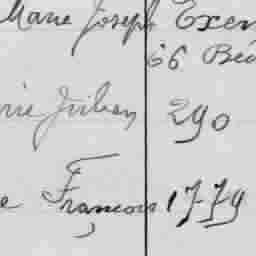 Marie Joseph Exem
66 Béd
rie Julien 290
e François 1779